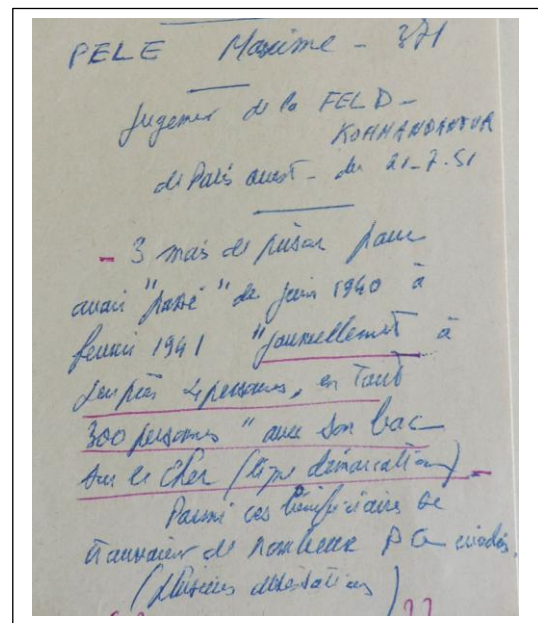 PELE Maxime - 371
Jugement de la FELD-
KOMMANDANTUR
de Paris ouest - du 21-7-51
- 3 mois de prison pour
avoir "passé" de juin 1940 à
fevrier 1941 "journellement à
peu près 4 personnes, en tout
300 personnes" avec son bac
sur le Cher (ligne démarcation) -
Parmi ces bénéficiaires se
trouvaient de nombreux P G évadés
(plusieurs attestations)